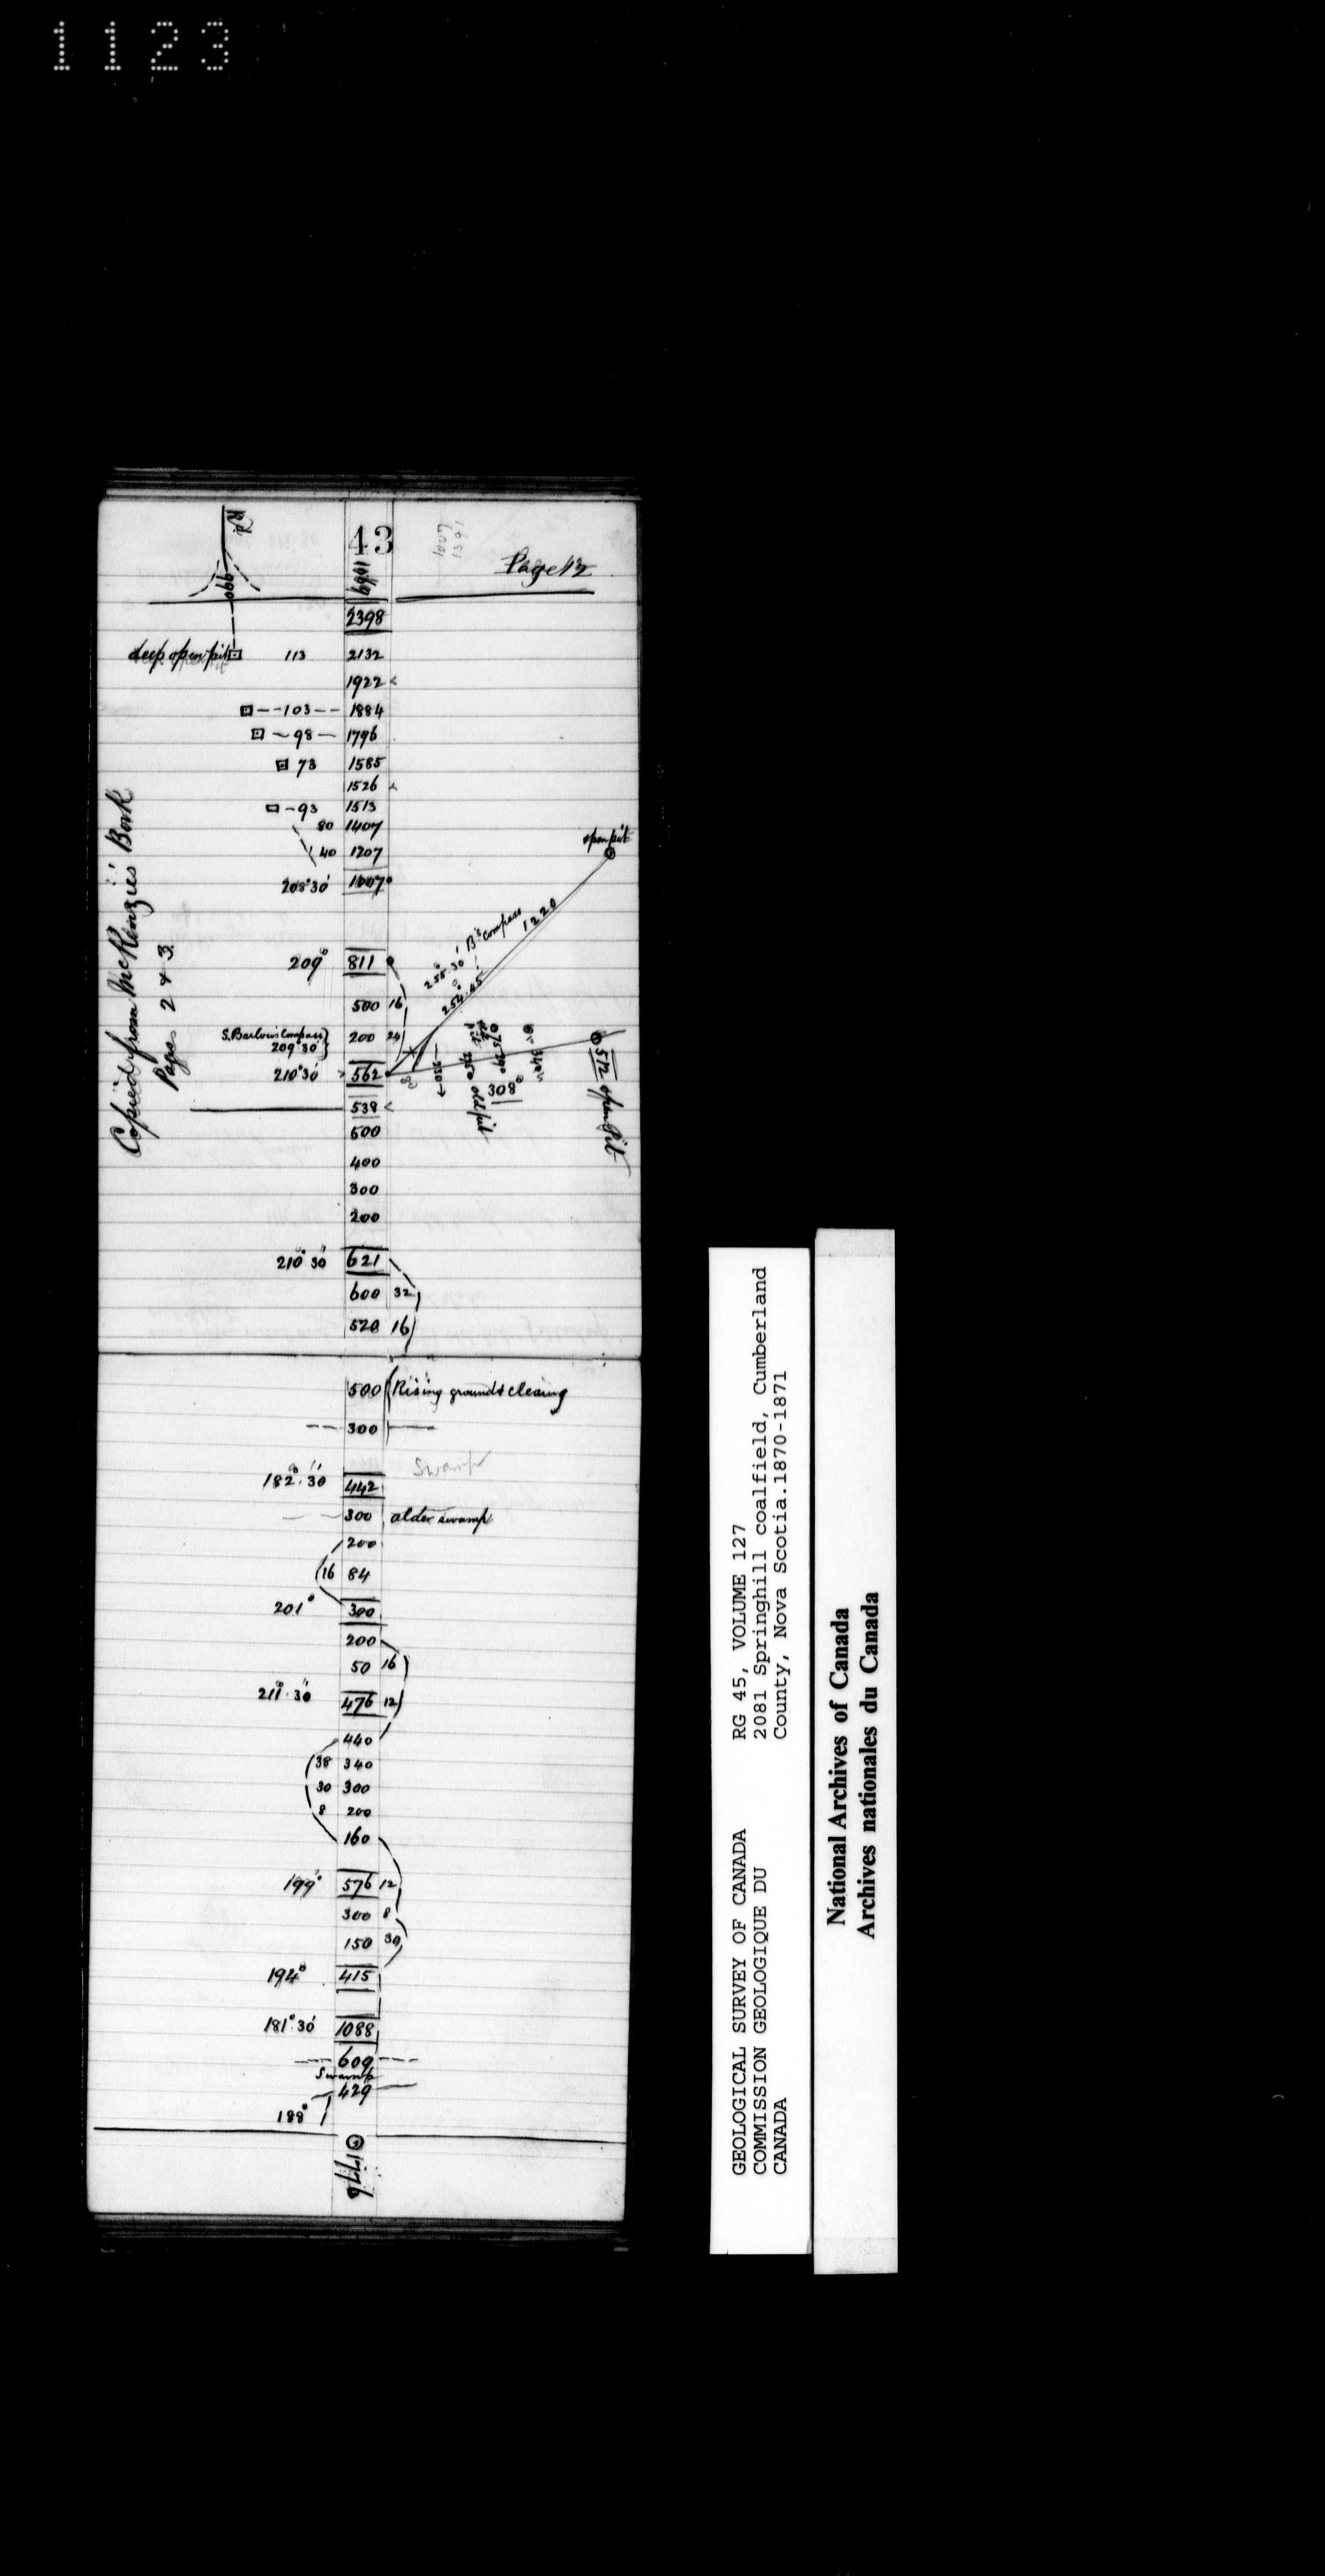 1123
43
1007
1391
Page 12
1069
Rd
990
2398
deep open pit 113 2132
1922
103 1884
98 1796
73 1585
1526
93 1513
80 1407
40 1207
208°30' 1007
open pit
1220
255.30' B's compass
254°45'
209° 811
500 16
S. Barlow's Compass 200 24
209°30'
210°30' 562
308°
old pit
572 open Pit
538
500
400
300
200
210°30" 621
600 32
520 16
Copied from McKenzie's Book
Pages 2 & 3
500 Rising ground & clearing
300
Swamp
182°.30" 442
300 alder swamp
200
16 84
201° 300
200
50 16
211°.30" 476 12
440
38 340
30 300
8 200
160
199° 576 12
300 8
150 30
194° 415
181°.30' 1088
609
Swamp
429
188°
1776
GEOLOGICAL SURVEY OF CANADA
COMMISSION GEOLOGIQUE DU
CANADA
RG 45, VOLUME 127
2081 Springhill coalfield, Cumberland
County, Nova Scotia.1870-1871
National Archives of Canada
Archives nationales du Canada